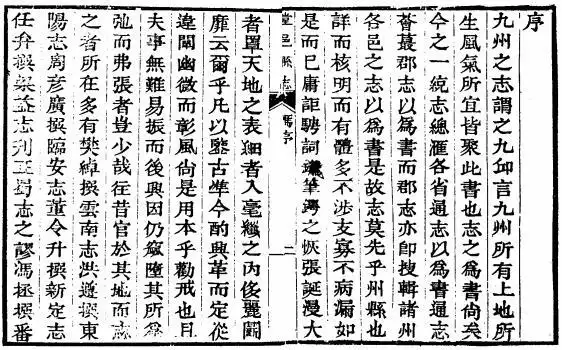 序
九州之志謂之九丘言九州所有土地所
生風氣所宜皆聚此書也志之爲書尚矣
今之一統志總滙各省通志以爲書通志
薈蕞郡志以爲書而郡志亦卽搜輯諸州
各邑之志以爲書是故志莫先乎州縣也
詳而核明而有體多不涉支寡不病漏如
是而已庸詎騁詞筆之恢張誕漫大
堂邑縣志
馮序
二
者罩天地之表細者入毫纖之內侈麗閎
靡云爾乎凡以鑒古準今酌興革而定從
違闡幽微而彰風尚是用本乎勸戒也且
夫事無難易振而後興因仍窳墮其所爲
弛而弗張者豈少哉徃昔官於其地而蒞
之者所在多有樊綽撰雲南志洪遵撰東
陽志周彥廣撰臨安志董令升撰新定志
任弁撰梁益志刋正蜀志之謬馮拯撰番